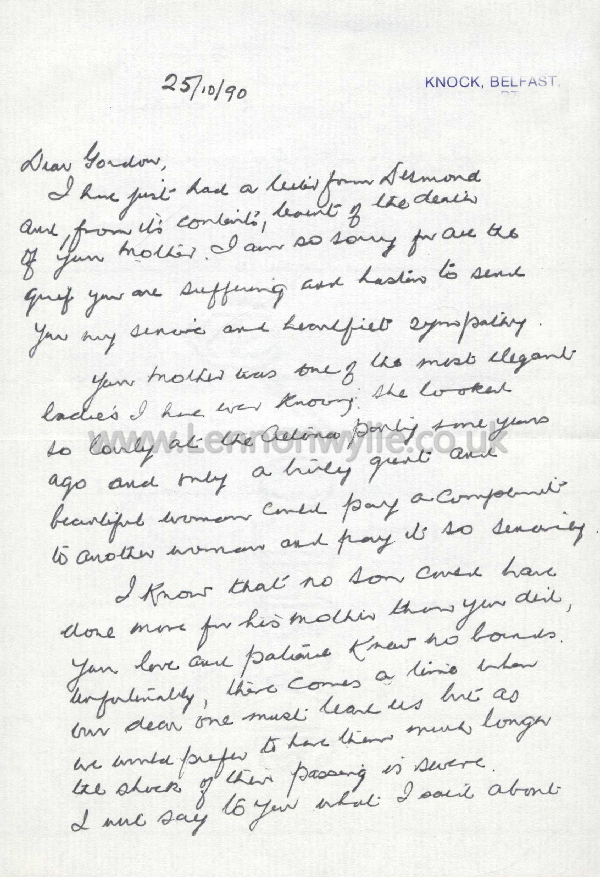 25/10/90
KNOCK, BELFAST.
Dear Gordon,
I have just had a letter from Desmond
and, from its contents, learnt of the death
of your Mother. I am so sorry for all the
grief you are suffering and hasten to send
you my sincere and heartfelt sympathy.
Your Mother was one of the most elegant
ladies I have ever known. She looked
so lovely at the party some years
ago and only a truly great and
beautiful woman could pay a compliment
to another woman and pay it so sincerely.
I know that no son could have
done more for his mother than you did,
your love and patience knew no bounds.
Unfortunately, there comes a time when
our dear one must leave us but as
we would prefer to have them much longer
the shock of their passing is severe.
I will say to you what I said about
www.Lennonwylie.co.uk